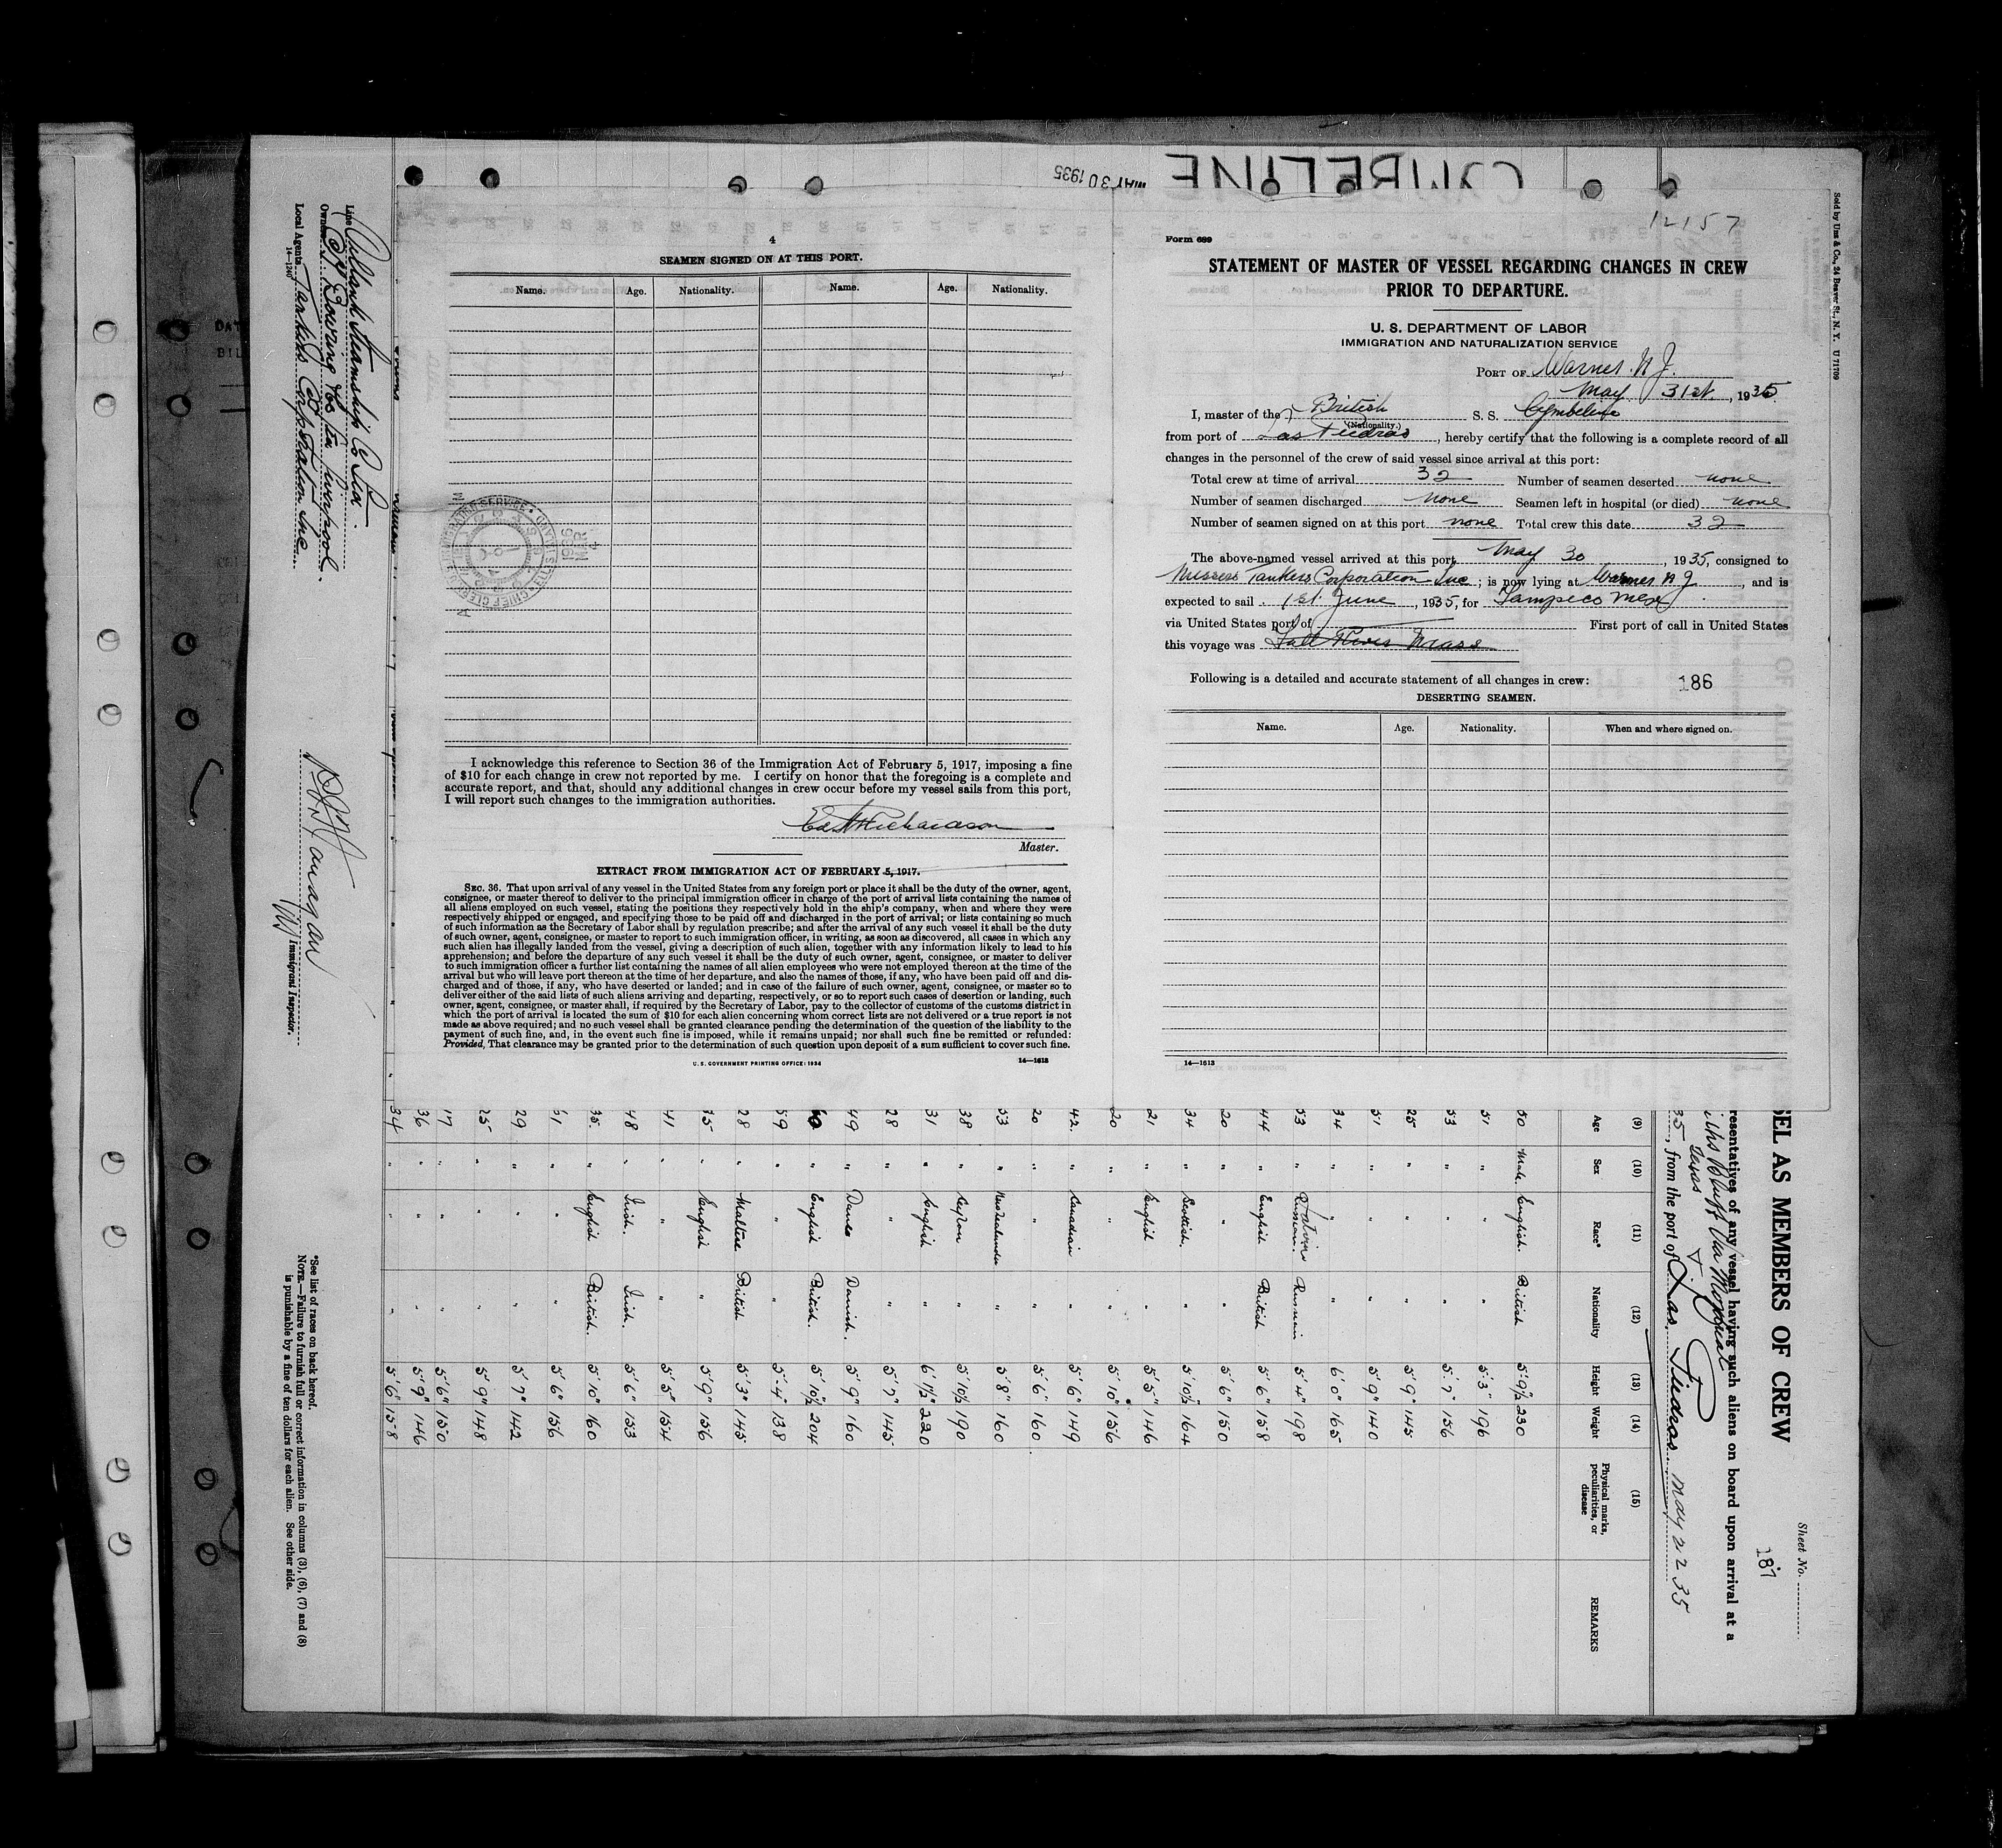 CYMBELINE
MAY 30 1935
12157
Sold by Unz & Co., 24 Beaver St., N. Y. U 71709
Form 689
STATEMENT OF MASTER OF VESSEL REGARDING CHANGES IN CREW
PRIOR TO DEPARTURE.
U. S. DEPARTMENT OF LABOR
IMMIGRATION AND NATURALIZATION SERVICE
PORT OF Warner N J.
May 31st, 1935.
I, master of the British S. S. Cymbeline
(Nationality.)
from port of Las Piedras, hereby certify that the following is a complete record of all
changes in the personnel of the crew of said vessel since arrival at this port:
Total crew at time of arrival 32 Number of seamen deserted none
Number of seamen discharged none Seamen left in hospital (or died) none
Number of seamen signed on at this port none Total crew this date 32
The above-named vessel arrived at this port May 30, 1935, consigned to
Messrs Tankers Corporation Inc; is now lying at Warner N J, and is
expected to sail 1st June, 1935, for Tampico Mex
via United States port of First port of call in United States
this voyage was Fall River Mass
Following is a detailed and accurate statement of all changes in crew: 186
DESERTING SEAMEN.
Name. Age. Nationality. When and where signed on.
14—1613
4
SEAMEN SIGNED ON AT THIS PORT.
Name. Age. Nationality. Name. Age. Nationality.
I acknowledge this reference to Section 36 of the Immigration Act of February 5, 1917, imposing a fine
of $10 for each change in crew not reported by me. I certify on honor that the foregoing is a complete and
accurate report, and that, should any additional changes in crew occur before my vessel sails from this port,
I will report such changes to the immigration authorities.
Richardson
Master.
EXTRACT FROM IMMIGRATION ACT OF FEBRUARY 5, 1917.
SEC. 36. That upon arrival of any vessel in the United States from any foreign port or place it shall be the duty of the owner, agent,
consignee, or master thereof to deliver to the principal immigration officer in charge of the port of arrival lists containing the names of
all aliens employed on such vessel, stating the positions they respectively hold in the ship's company, when and where they were
respectively shipped or engaged, and specifying those to be paid off and discharged in the port of arrival; or lists containing so much
of such information as the Secretary of Labor shall by regulation prescribe; and after the arrival of any such vessel it shall be the duty
of such owner, agent, consignee, or master to report to such immigration officer, in writing, as soon as discovered, all cases in which any
such alien has illegally landed from the vessel, giving a description of such alien, together with any information likely to lead to his
apprehension; and before the departure of any such vessel it shall be the duty of such owner, agent, consignee, or master to deliver
to such immigration officer a further list containing the names of all alien employees who were not employed thereon at the time of the
arrival but who will leave port thereon at the time of her departure, and also the names of those, if any, who have been paid off and dis-
charged and of those, if any, who have deserted or landed; and in case of the failure of such owner, agent, consignee, or master so to
deliver either of the said lists of such aliens arriving and departing, respectively, or so to report such cases of desertion or landing, such
owner, agent, consignee, or master shall, if required by the Secretary of Labor, pay to the collector of customs of the customs district in
which the port of arrival is located the sum of $10 for each alien concerning whom correct lists are not delivered or a true report is not
made as above required; and no such vessel shall be granted clearance pending the determination of the question of the liability to the
payment of such fine, and, in the event such fine is imposed, while it remains unpaid; nor shall such fine be remitted or refunded:
Provided, That clearance may be granted prior to the determination of such question upon deposit of a sum sufficient to cover such fine.
U. S. GOVERNMENT PRINTING OFFICE: 1934
14—1613
Sheet No.
187
SEL AS MEMBERS OF CREW
resentatives of any vessel having such aliens on board upon arrival at a
Bluff Via Montreal
Texas
35, from the port of Las Piedras May 22 35
(9) (10) (11) (12) (13) (14) (15)
Age Sex Race* Nationality Height Weight Physical marks, peculiarities, or disease REMARKS
50 Male English. British 5' 9½ 230
51 " " " 5' 3" 196
53 " " " 5' 7" 156
25 " " " 5' 9" 145
51 " " " 5' 9" 140
34 " " " 6' 0" 165
53 " Latvian Russian. Russian 5' 4" 198
44 " English British 5' 6" 158
20 " " " 5' 6" 150
34 " Scottish. " 5' 10½ 164
21 " English " 5' 5" 146
20 " " " 5' 10" 156
42 " Canadian " 5' 6" 149
20 " " " 5' 6" 160
53 " New Zealander " 5' 8" 160
38 " Ceylon " 5' 10½ 190
31 " English " 6' 1½" 220
28 " " " 5' 7" 145
49 " Danes Danish. 5' 9" 160
" English British. 5' 10½ 204
59 " " " 5' 4" 138
28 " Maltese British 5' 3" 145
35 " English " 5' 9" 156
41 " " " 5' 5" 154
48 " Irish. Irish. 5' 6" 153
35 " English British. 5' 10" 160
51 " " " 5' 6" 156
29 " " " 5' 7" 142
25 " " " 5' 9" 148
17 " " " 5' 6" 150
36 " " " 5' 9" 146
34 " " " 5' 6" 158
Line Allbank Steamship Co Ltd.
Owners C T Bowring & Co Ltd Liverpool.
Local Agents Tankers Corporation Inc
14—1240
Immigrant Inspector.
*See list of races on back hereof.
NOTE.—Failure to furnish full or correct information in columns (3), (6), (7) and (8)
is punishable by a fine of ten dollars for each alien. See other side.